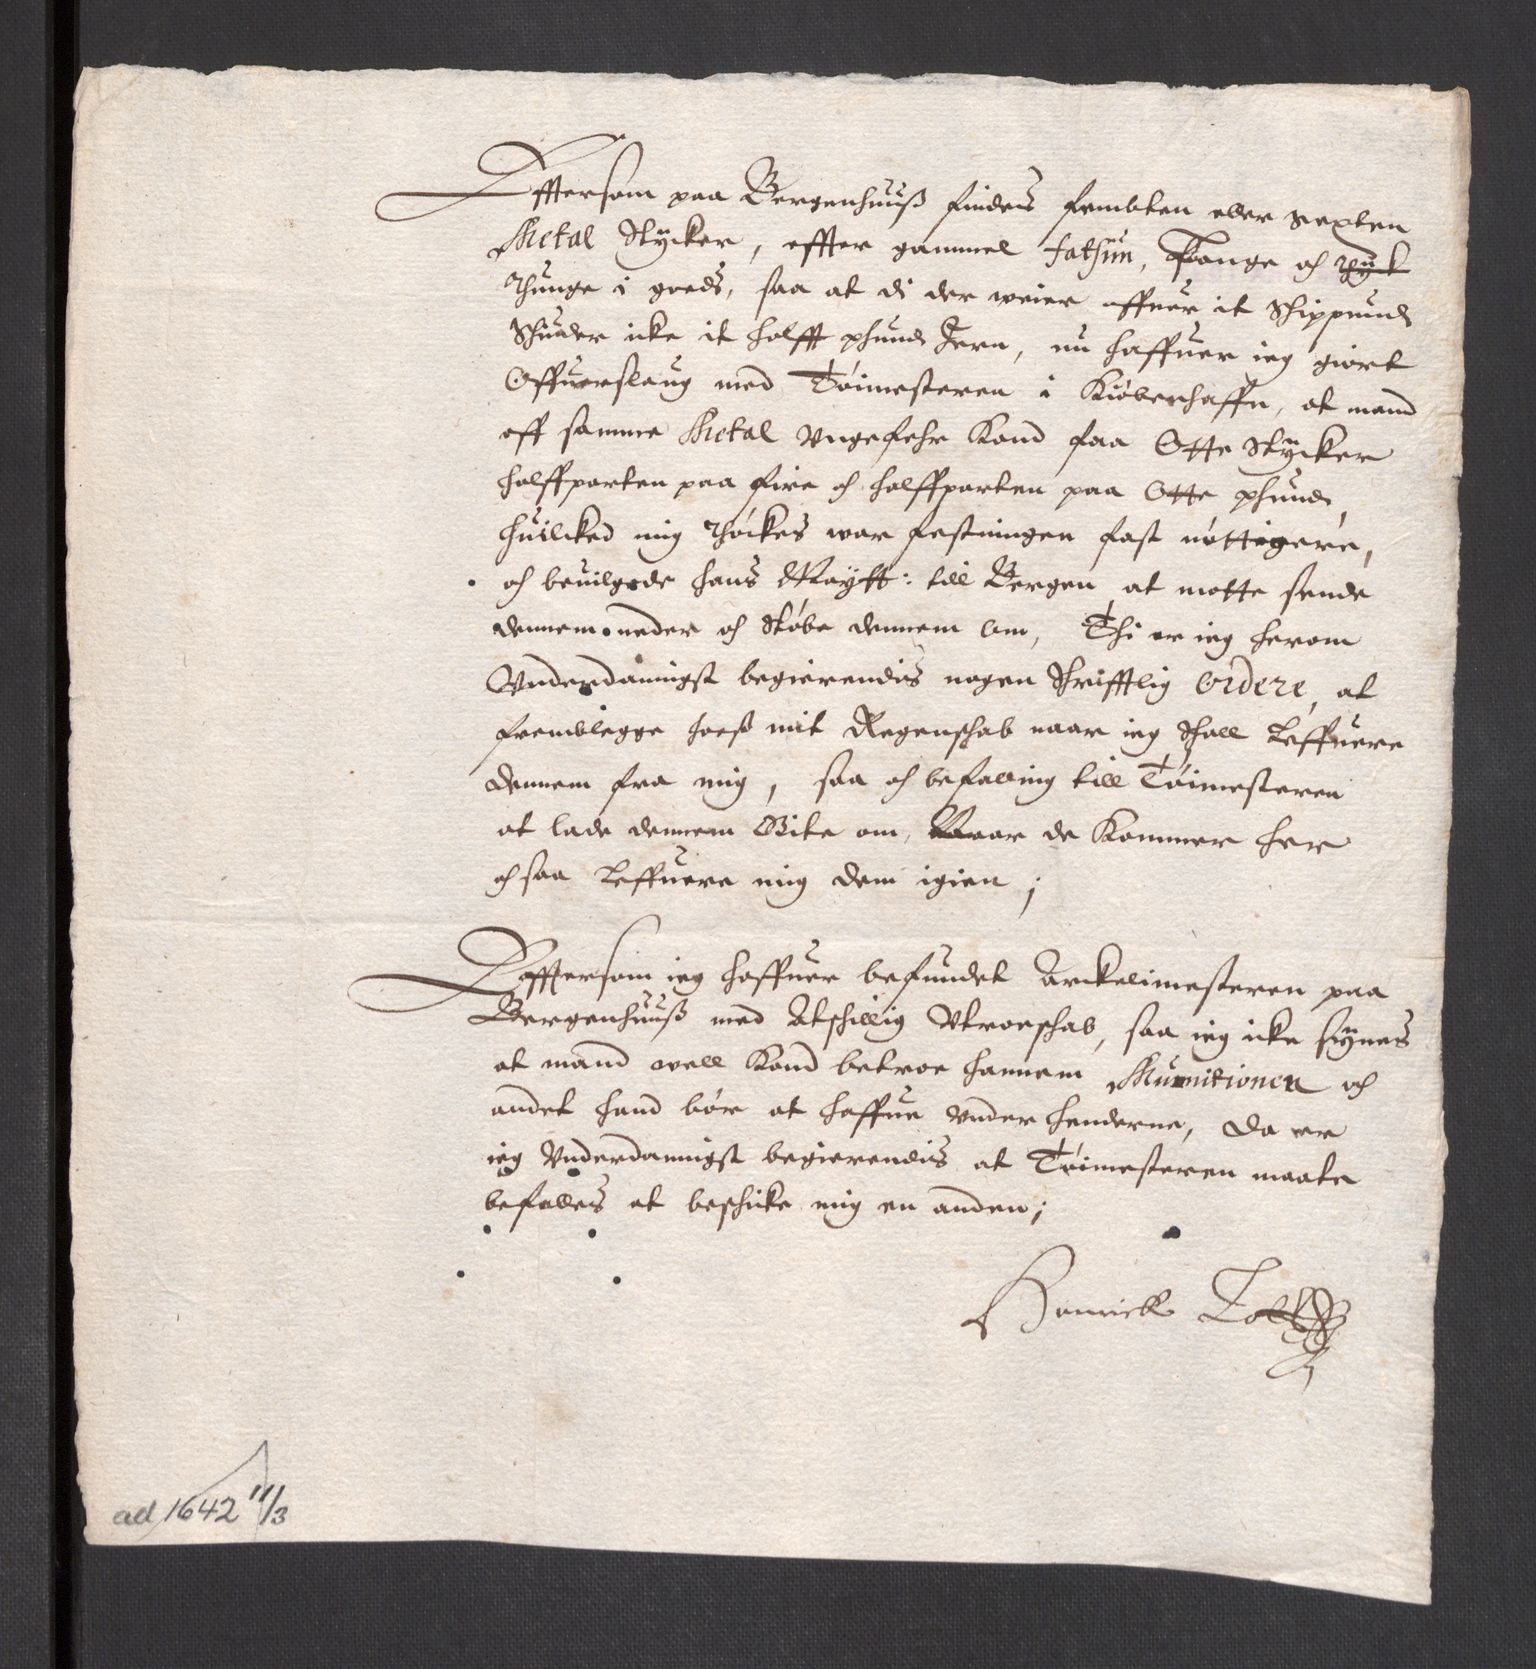 Effttersom paa Bergenhuuß findes fembten eller sexten
Metal Stÿcker, effter gammel fatsun, lange och
thunge i goeds, saa at di der weier offuer it Schippund
Schuder icke it halfft phund Jern, nu haffuer ieg giort
Offuerslaug med Tóimesteren i Kiöbenhaffn, at mand
aff samme Metal Vngefehr Kand faa Otte Stÿcker
halffparten paa fire och halffparten paa Otte phund,
huilcked mig thóckes war festningen fast nóttigere,
och beuilgede hans Maÿtt: till Bergen at motte sende
dennem neder och stóbe dennem om, Thi er ieg herom
Vnderdanigst begierendis nogen Schrifftlig Ordere, at
fremblegge hoeß mit Regenschab naar ieg schall leffuere
dennem fra mig, saa och befalling till Tóimesteren
at lade dennem Gite om, Naar de Kommer her
och saa leffuere mig dem igien;
Effttersom ieg haffuer befundet Arckelimesteren paa
Bergenhuuß med Atschillig Vtroeschab, saa ieg icke sÿnes
at mand well Kand betroe hannem Munitionen och
andet hand bór at haffue vnder henderne, da er
ieg Vnderdanigst begierendis at Tóimesteren maate
befalles at beschicke mig en anden;
Henrick Tott
ad 1642 11/3